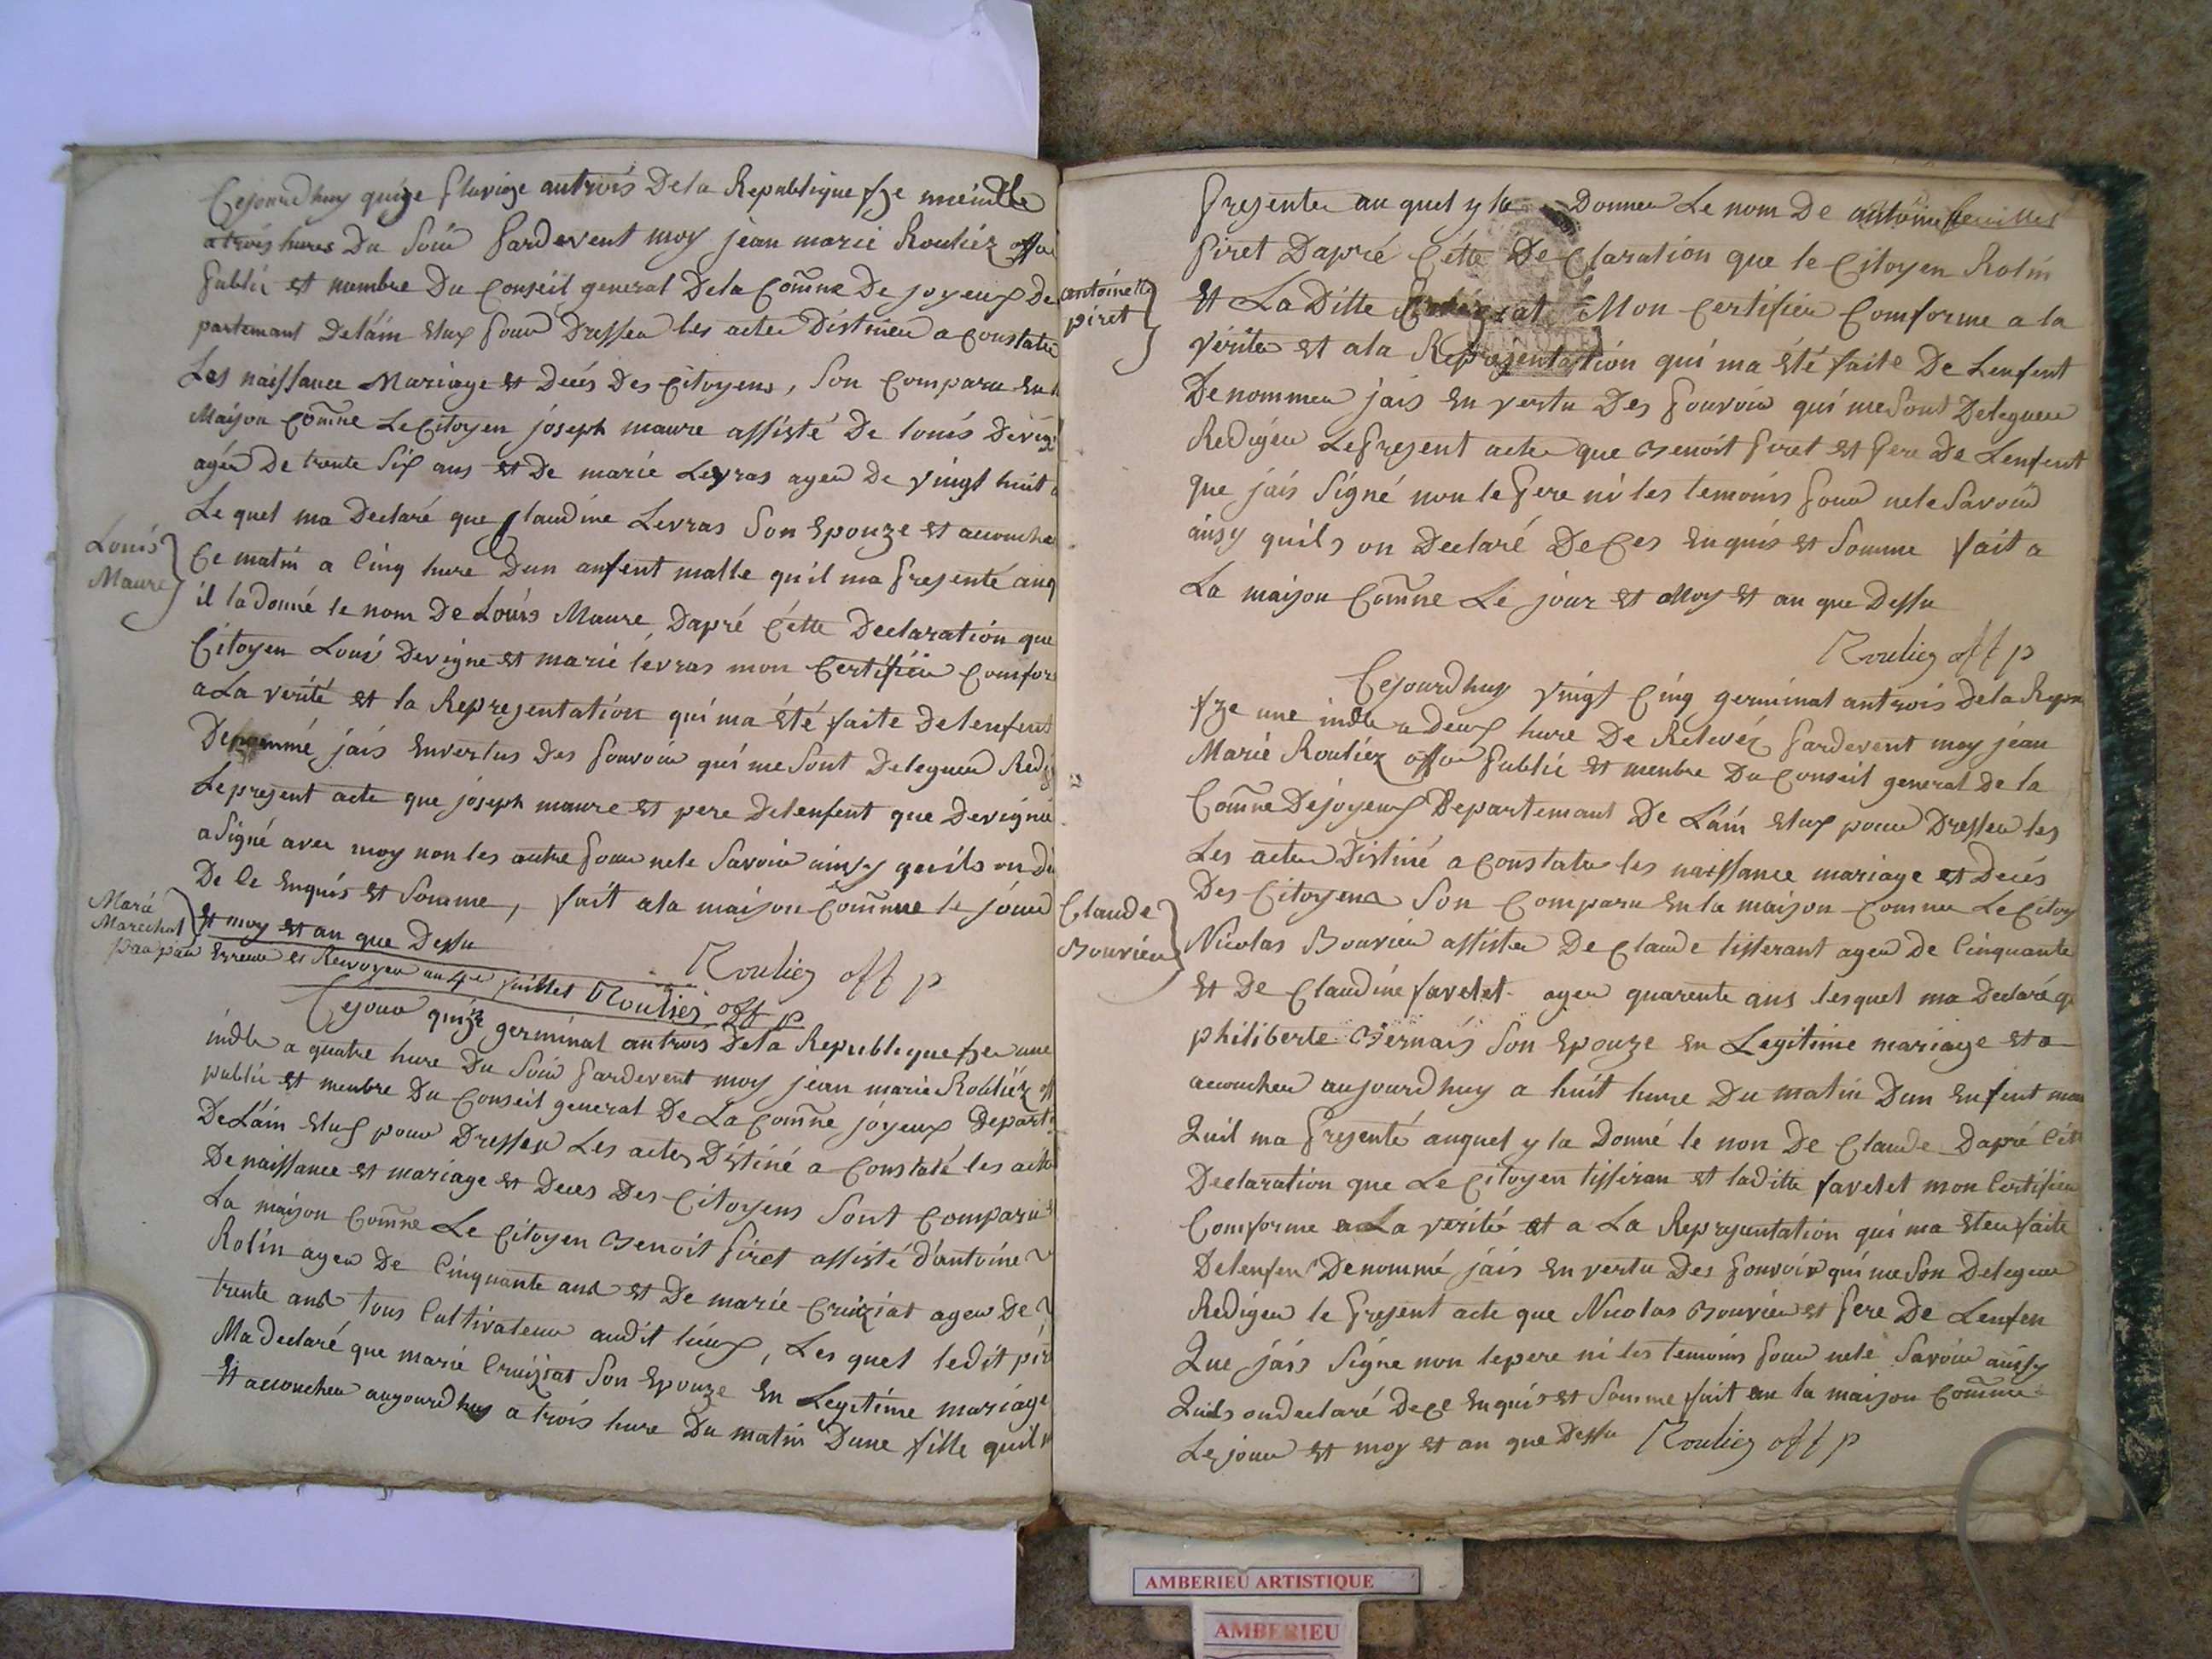 Cejourdhuy quize pluvioze antrois Dela Republique fze une indle
a trois hures Du Soir pardevent moy jean marie Rouliéz offi
public et membre Du Conseil general Dela Comne De joyeux De
partemant Delain Elux pour Dresser les acter Distinéz a constater
Les naissance Mariage et Decés Des Citoyens, Son Comparu En
Maison Comne Le Citoyen joseph maure assisté De louis Devig
agér De trente Six ans et De marie Levras ager De vingt huit
Le quel ma Declaré que Claudine Levras Son Epouze et accouche
Louis
Maure
Ce matin a Cinq hure Dun anfent malle qu'il ma presenté auq
il la donné le nom De Louis Maure, Dapré Cétte Declaration que
Citoyen Louis Devigne et marie levras mon Certifiér Comfor
a La verité et la Reprezentation qui ma Été faite Delenfent
Denommé jais Envertus Des pouvoir qui me Sont Deleguer Redi
Le prezent acte que joseph maure et pere Delenfent que Devigne
a Signé avec moy non les autre pour nele Savoir ainsy quils on De
De Ce Enquis et Somme, fait ala maison Commune le jour
Marie
Marechal
et moy et an que Dessu
Rouliez off p
par Erreur et Renvoyer au 4e juillet Rouliez off p
Cejour quize germinal antrois Dela Republique fze une
indle a quatre hure Du Soir pardevent moy jean marie Rouliéz off
public et menbre Du Conseil general De La Comne joyeux Depart
DeLain Elux pour Dresser Les acter Déstiné a Constaté les acte
De naissance et mariage et Deces Des Citoyens Sont Comparu
La maison Comne Le Citoyen Benoit piret assisté d'antoine
Rolin ager De Cinquante ans et De marie Cruiziat ager De
trente ans tous Cultivateur audit lieux, Les quel ledit pire
Ma declaré que marie Cruiziat Son Epouze En Legitime mariage
Et accoucher aujourdhuy a trois hure Du matin Dune fille quil
prezenter au quel y la Donner Le nom De antoinette
antoinette
piret
piret Dapré Cétte Declaration que le Citoyen Rolin
Et La Ditte Cruiziat Mon Certifiér Comforme a la
vériter et ala Reprezentation qui ma Été faite De Lenfent
Denommer jais En vertu Des pouvoir qui me Sont Deleguer
Rediger Le prezent acter que Benoit piret et pere De Lenfent
que jais Signé non le pere ni les temoins pour nele Savoir
ainsy quils on Declaré De Ces Enquis et Somme fait a
La maison Comne Le jour et Moy et an que Dessu
Rouliez off p
Cejourdhuy vingt Cinq germinal antrois Dela Repu
fze une indle a Deux hure De Relevéz pardevent moy jéan
Marie Rouliéz offer public et menbre Du Conseil general de la
Comne Dejoyeux Departemant De Lain Elux pour Dresser les
Les acter Distiné a constater les naissance mariage et Decés
Des Citoyens Son Comparu En la maison Comne Le Citoy
Claude
Bouviér
Nicolas Bouviér assister De Claude tisserant ager de Cinquante
Et De Claudine favelet ager quarente ans lesquel ma Declaré q
philiberte Bernais Son Epouze En Legitime mariage et a
accoucher aujourdhuy a huit hure Du matin Dun Enfent ma
Quil ma prezenté auquel y la Donné le non De Claude Dapré Cét
Declaration que Le Citoyen tisseran et ladite favelet mon Certifier
Comforme a La verité et a La Reprezentation qui ma Eter faite
Delenfen Denommé jais En vertu Des pouvoir qui me Son Deleguer
Rediger le prezent acte que Nicolas Bouviér et pere De Lenfen
Que jais Signe non le pere ni les temoins pour nele Savoir ainsy
Quils on declaré Dece Enquis et Somme fait en la maison Comne
Le jour et moy et an que Dessu Rouliez off p
AMBERIEU ARTISTIQUE
AMBERIEU